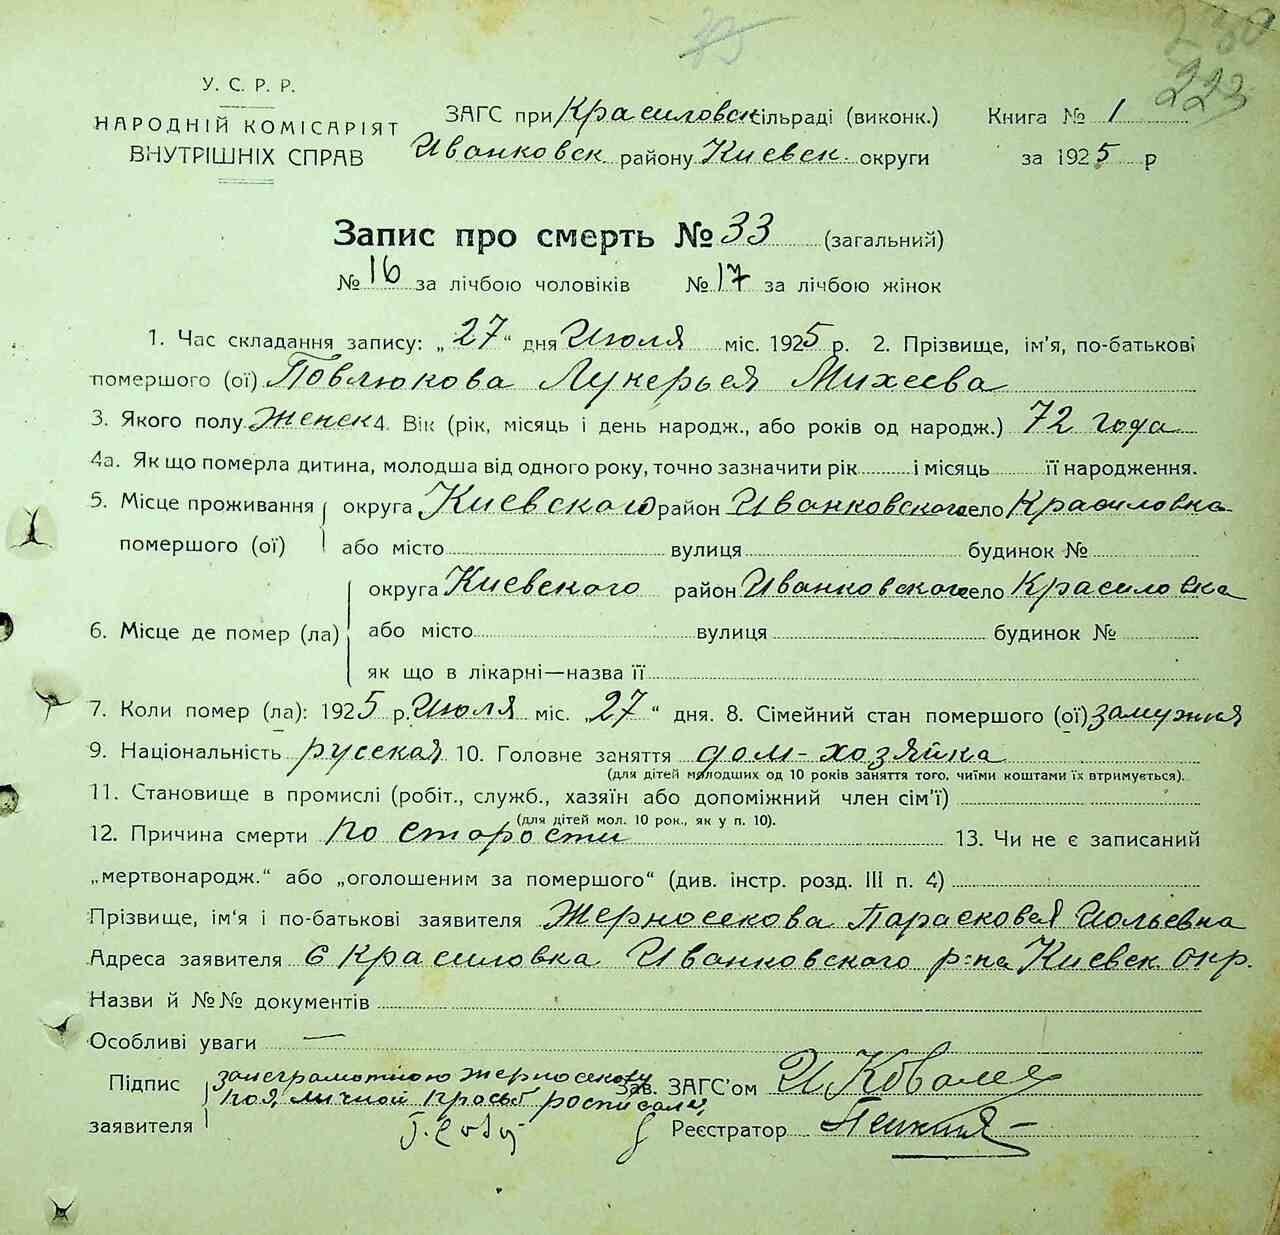 223
У. С. Р. Р.
НАРОДНІЙ КОМІСАРІЯТ
ВНУТРІШНІХ СПРАВ
ЗАГС при Красиловск сільраді (виконк.) Книга № 1
Иванковск району Киевск. округи за 1925 р
Запис про смерть № 33 (загальний)
№ 16 за лічбою чоловіків № 17 за лічбою жінок
1. Час складання запису: „27“ дня Июля міс. 1925 р. 2. Прізвище, ім'я, по-батькові
помершого (ої) Повлюкова Лукерья Михеева
3. Якого полу Женск 4. Вік (рік, місяць і день народж., або років од народж.) 72 года
4а. Як що померла дитина, молодша від одного року, точно зазначити рік і місяць її народження.
5. Місце проживання округа Киевского район Иванковского село Красиловка
помершого (ої) або місто вулиця будинок №
округа Киевского район Иванковского село Красиловка
6. Місце де помер (ла) або місто вулиця будинок №
як що в лікарні—назва її
7. Коли помер (ла): 1925 р. Июля міс. „27“ дня. 8. Сімейний стан помершого (ої) замужняя
9. Національність русская 10. Головне заняття дом-хозяйка
(для дітей молодших од 10 років заняття того, чиїми коштами їх втримується).
11. Становище в промислі (робіт., служб., хазяїн або допоміжний член сім'ї)
(для дітей мол. 10 рок., як у п. 10).
12. Причина смерти по старости 13. Чи не є записаний
„мертвонародж.“ або „оголошеним за помершого“ (див. інстр. розд. III п. 4)
Прізвище, ім'я і по-батькові заявителя Жерносекова Парасковея Иольевна
Адреса заявителя с Красиловка Иванковского р-на Киевск. окр.
Назви й №№ документів
Особливі уваги —
Підпис занеграмотною Жерносекову Зав. ЗАГС'ом И Ковале
поя, личной просьб росписаля,
заявителя Реєстратор